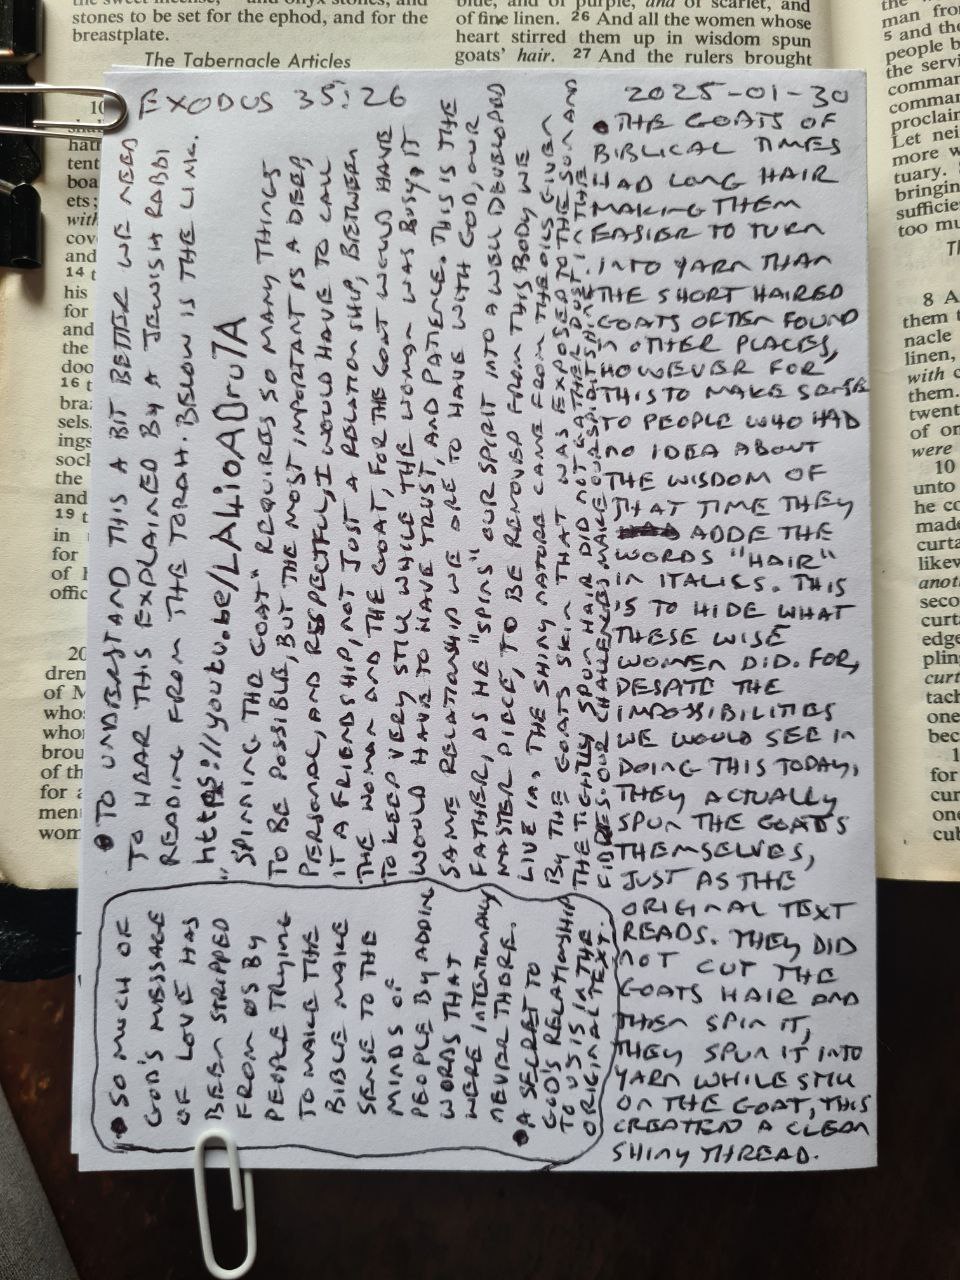 stones to be set for the ephod, and for the
breastplate.
The Tabernacle Articles
of fine linen. 26 And all the women whose
heart stirred them up in wisdom spun
goats' hair. 27 And the rulers brought
EXODUS 35:26
2025-01-30
• THE GOATS OF
BIBLICAL TIMES
HAD LONG HAIR
MAKING THEM
EASIER TO TURN
INTO YARN THAN
THE SHORT HAIRED
GOATS OFTEN FOUND
IN OTHER PLACES,
HOWEVER FOR
THIS TO MAKE SENSE
TO PEOPLE WHO HAD
NO IDEA ABOUT
THE WISDOM OF
THAT TIME THEY
ADDE THE
WORDS "HAIR"
IN ITALICS. THIS
IS TO HIDE WHAT
THESE WISE
WOMEN DID. FOR,
DESPITE THE
IMPOSSIBILITIES
WE WOULD SEE IN
DOING THIS TODAY,
THEY ACTUALLY
SPUN THE GOATS
THEMSELVES,
JUST AS THE
ORIGINAL TEXT
READS. THEY DID
NOT CUT THE
GOATS HAIR AND
THEN SPIN IT,
THEY SPUN IT INTO
YARN WHILE STILL
ON THE GOAT, THIS
CREATED A CLEAN
SHINY THREAD.
• TO UNDERSTAND THIS A BIT BETTER WE NEED
TO HEAR THIS EXPLAINED BY A JEWISH RABBI
READING FROM THE TORAH. BELOW IS THE LINK.
https://youtu.be/LA4ioADru7A
"SPINNING THE GOAT" REQUIRES SO MANY THINGS
TO BE POSSIBLE, BUT THE MOST IMPORTANT IS A DEEP,
PERSONAL, AND RESPECTFUL, I WOULD HAVE TO CALL
IT A FRIENDSHIP, NOT JUST A RELATIONSHIP, BETWEEN
THE WOMAN AND THE GOAT, FOR THE GOAT WOULD HAVE
TO KEEP VERY STILL WHILE THE WOMAN WAS BUSY, IT
WOULD HAVE TO HAVE TRUST, AND PATIENCE. THIS IS THE
SAME RELATIONSHIP WE ARE TO HAVE WITH GOD, OUR
FATHER, AS HE "SPINS" OUR SPIRIT INTO A WELL DEVELOPED
MASTER PIECE, TO BE REMOVED FROM THIS BODY WE
LIVE IN. THE SHINY NATURE CAME FROM THE OILS GIVEN
BY THE GOATS SKIN THAT WAS EXPOSED TO THE SUN AND
THE TIGHTLY SPUN HAIR DID NOT GATHER DUST IN THE
FIBRES. OUR CHALLENGES MAKE OUR SPIRIT SHINE.
• SO MUCH OF
GOD'S MESSAGE
OF LOVE HAS
BEEN STRIPPED
FROM US BY
PEOPLE TRYING
TO MAKE THE
BIBLE MAKE
SENSE TO THE
MINDS OF
PEOPLE BY ADDING
WORDS THAT
WERE INTENTIONALLY
NEVER THERE.
• A SECRET TO
GODS RELATIONSHIP
TO US IS IN THE
ORIGINAL TEXT.